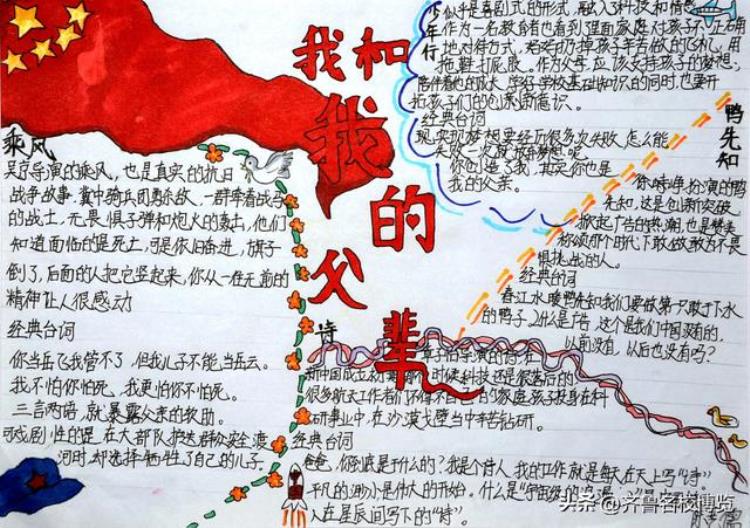 我和
我
的
父
辈
乘风
吴京导演的乘风，也是真实的抗日
战争故事，冀中骑兵团
的战士，无畏惧子弹和炮火的轰击，他们
知道面临的是死亡，可是依旧奋进，旗子
倒了，后面的人把它竖起来，你从一往无前的
精神让人很感动
经典台词
你当岳飞我管不了，但我儿子不能当岳云。
我不怕你怕死，我更怕你不怕死。
三言两语，就暴露父亲的软肋。
戏剧性的是，在大部队护送群众安全渡
河时，却选择牺牲了自己的儿子。
少年行
似乎是喜剧式的形式，融入了科技和情感
作为一名教育者也看到了里面家庭对孩子不正确
地对待方式，
拖鞋打屁股。作为父母，应该支持孩子的梦想；
学好学校基础知识的同时，也要开
拓孩子们的创新意识。
经典台词
现实现梦想要经历很多次失败，怎么能
失败一次就放弃梦想呢。
你创造了我，其实你也是
我的父亲。
鸭先知
扮演的鸭
先知，这是创新突破，
掀起广告的热潮，也是赞美
你们那个时代下敢做敢为不畏
惧挑战的人。
经典台词
春江水暖鸭先知我们要做第一只敢于下水
的鸭子。什么是广告，这个是我们中国没有的，
以前没有，以后也没有吗？
诗
章子怡导演的诗，在
新中国成立初期，那个时候科技还是很落后的，
很多航天工作者们不得不
研事业中，在沙漠戈壁当中辛苦钻研。
经典台词
爸爸，你到底是干什么的？我是个诗人，我的工作就是每天在天上写“诗”
平凡的渺小是伟大的开始。什么是
人在星辰间写下的“诗”。
头条@齐鲁名校博览